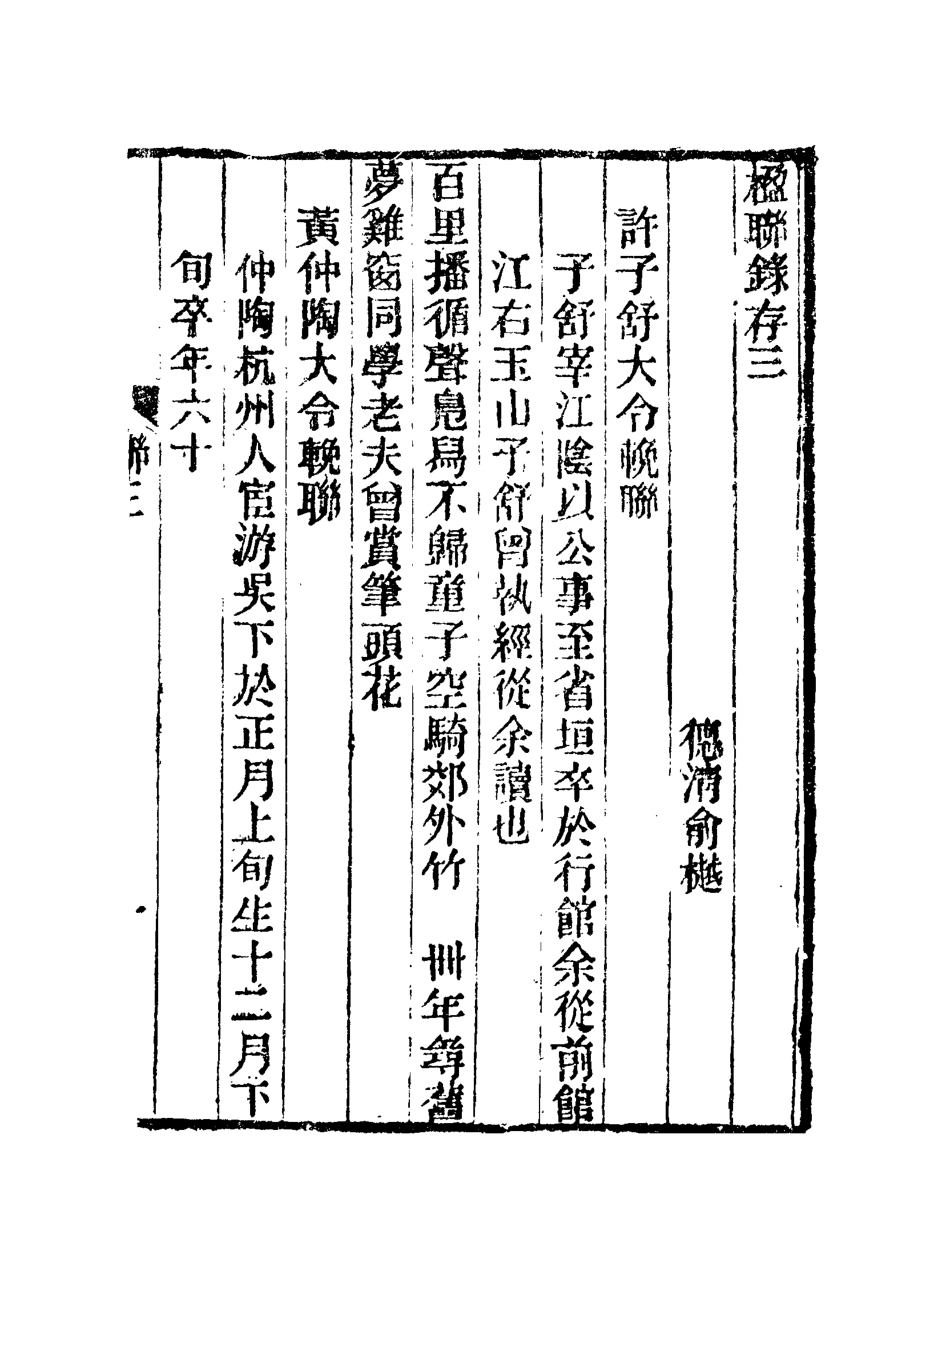 楹聯錄存三
德清俞樾
許子舒大令輓聯
子舒宰江陰以公事至省垣卒於行館余從前館
江右玉山子舒曾執經從余讀也
百里播循聲鳧舄不歸童子空騎郊外竹　卌年尋舊
夢雞窗同學老夫曾賞筆頭花
黃仲陶大令輓聯
仲陶杭州人宦游吳下於正月上旬生十二月下
旬卒年六十
聯三